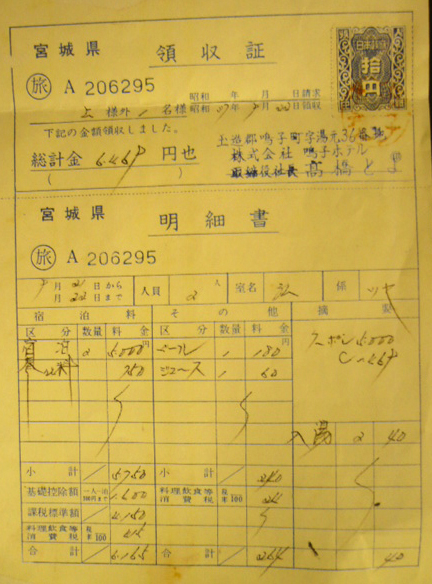 宮城県 領収証
日本政府
拾円
旅 A 206295
昭和 年 月 日請求
様外 1 名様 昭和 47年 9月 22日領収
下記の金額領収しました。
総計金 6.469 円也
( )
玉造郡鳴子町字湯元36番地
株式会社 鳴子ホテル
取締役社長 高橋とま
宮城県 明細書
旅 A 206295
9月 21日から
月 22日まで
人員 2人 室名 係
宿泊料 その他 摘要
区分 数量 料金 区分 数量 料金
宿泊 2 5.000円 ビール 1 180円
750 ジュース 1 60
5.000
入湯 2 40
小計 5.750 小計 240
基礎控除額 一人一泊 円まで 1.600 料理飲食等消費税 100 24
課税標準額 4.150
料理飲食等消費税 100 415
合計 6.165 合計 264 40